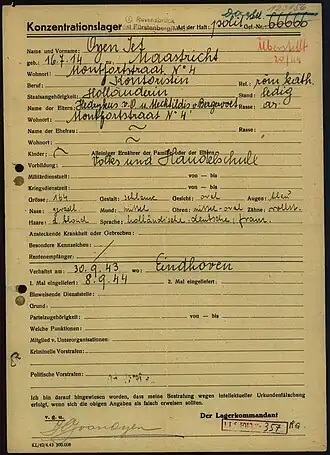 Konzentrationslager Art der Haft: polit. Gef.-Nr.: 66666
Ravensbrück
Fürstenberg
Überstellt
Name und Vorname: Open Jet
geb.: 16.7.14 zu: Maastricht
Wohnort: Montfortstraat No 4
Beruf: Kontoristin Rel.: röm. kath.
Staatsangehörigkeit: Holländerin Stand: ledig
Name der Eltern: Rasse: ar.
Wohnort: Montfortstraat No 4
Name der Ehefrau: ~ Rasse:
Wohnort: ~
Kinder: ~ Alleiniger Ernährer der Familie oder der Eltern:
Vorbildung: Volks und Handelschule
Militärdienstzeit: von — bis
Kriegsdienstzeit: von — bis
Grösse: 164 Gestalt: schlank Gesicht: oval Augen: blau
Nase: Mund: mittel Ohren: mittel-oval Zähne: vollst.
Haare: blond Sprache: holländische, deutsche, franz.
Ansteckende Krankheit oder Gebrechen:
Besondere Kennzeichen:
Rentenempfänger:
Verhaftet am: 30.9.43 wo: Eindhoven
1. Mal eingeliefert: 8.9.44 2. Mal eingeliefert:
Einweisende Dienststelle:
Grund:
Parteizugehörigkeit: von — bis
Welche Funktionen:
Mitglied v. Unterorganisationen:
Kriminelle Vorstrafen:
Politische Vorstrafen:
Ich bin darauf hingewiesen worden, dass meine Bestrafung wegen intellektueller Urkundenfälschung
erfolgt, wenn sich die obigen Angaben als falsch erweisen sollten.
v. g. u. Der Lagerkommandant
357
KL/40/4.43 500.000